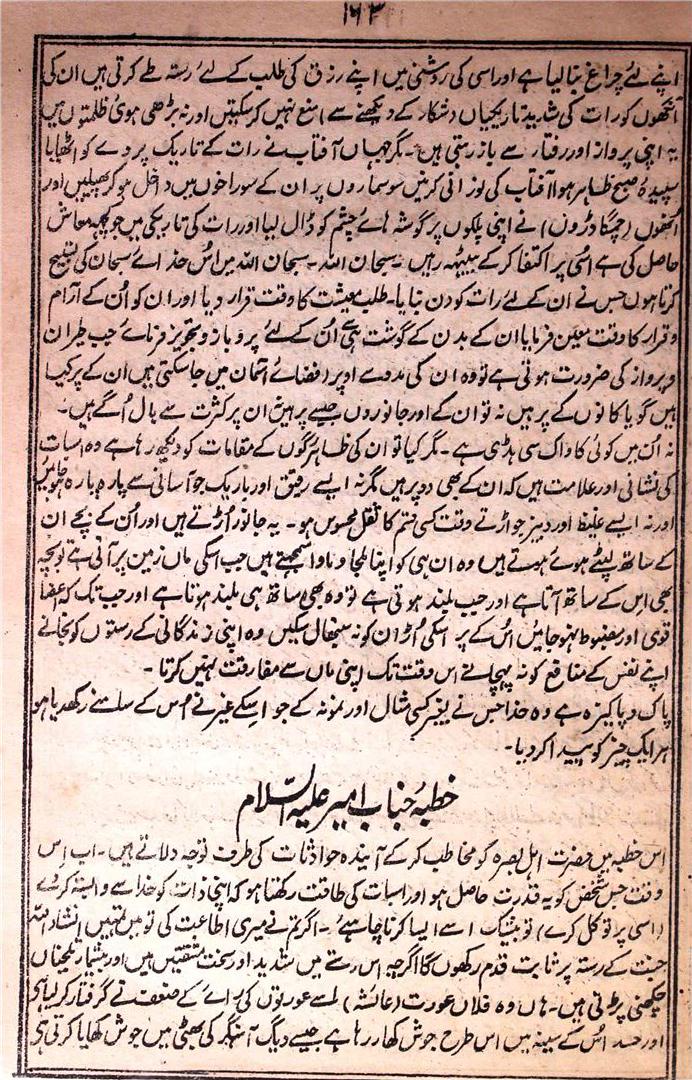 ۱۶۳
اپنے لئے چراغ بنا لیا ہے اور اسی کی روشنی میں اپنے رزق کی طلب کے لئے رستہ طے کرتی ہیں ان کی
آنکھوں کو رات کی شدید تاریکیاں (شکار کے دیکھنے سے) منع نہیں کر سکتیں اور نہ بڑھی ہوئی ظلمتوں میں
یہ اپنی پرواز اور رفتار سے باز رہتی ہیں۔ مگر جہاں آفتاب نے رات کے تاریک پردے کو اٹھایا
سپیدۂ صبح ظاہر ہوا آفتاب کی نورانی کرنیں سوسماروں پر ان کے سوراخوں میں داخل ہو کر پھیلیں اور
انھوں (چمگادڑوں) نے اپنی پلکوں پر گوشہ ہائے چشم کو ڈال لیا اور رات کی تاریکی میں جو کچھ معاش
حاصل کی ہے اُسی پر اکتفا کر کے بیٹھ رہیں۔ سبحان اللہ۔ سبحان اللہ میں اُس خدائے سبحان کی تسبیح
کرتا ہوں جس نے ان کے لئے رات کو دن بنایا۔ طلب معیشت کا وقت قرار دیا اور ان کو اُن کے آرام
و قرار کا وقت معین فرمایا ان کے بدن کے گوشت ہی سے اُن کے لئے پر و بازو تجویز فرمائے جب طیران
و پرواز کی ضرورت ہوتی ہے تو وہ ان کی مدد سے اوپر (فضائے آسمان میں جا سکتی ہیں ان کے پر کیا
ہیں گویا کانوں کے پر ہیں نہ تو ان کے اور جانوروں جیسے پر ہیں ان پر کثرت سے بال اُگے ہیں۔
نہ اُن میں کوئی کاواک سی ہڈی ہے۔ مگر کیا تو ان کی ظاہر رگوں کے مقامات کو دیکھ رہا ہے وہ اسبات
کی نشانی اور علامت ہیں کہ ان کے بھی دو پر ہیں مگر نہ ایسے رقیق اور باریک جو آسانی سے پارہ پارہ ہو جائیں
اور نہ ایسے غلیظ اور دبیز جو اڑتے وقت کسی قسم کا ثقل محسوس ہو۔ یہ جانور اُڑتے ہیں اور اُن کے بچے ان
کے ساتھ لپٹے ہوئے ہوتے ہیں وہ ان ہی کو اپنا ملجا و ماوا سمجھتے ہیں جب اسکی ماں زمین پر آتی ہے تو بچہ
بھی اس کے ساتھ آتا ہے اور جب بلند ہوتی ہے تو وہ بھی ساتھ ہی بلند ہوتا ہے اور جب تک کہ اعضا
قوی اور مضبوط نہو جائیں اُس کے پر اسکی اُڑان کو نہ سنبھال سکیں وہ اپنی زندگانی کے رستوں کو بجائے
اپنے نفس کے منافع کو نہ پہچانے اس وقت تک اپنی ماں سے مفارقت نہیں کرتا۔
پاک و پاکیزہ ہے وہ خدا جس نے بغیر کسی مثال اور نمونہ کے جو اسکے غیر نے اُس کے سامنے رکھدیا ہو
ہر ایک چیز کو پیدا کر دیا۔
خطبہ جناب امیر علیہ السّلام
اس خطبہ میں حضرت اہل بصرہ کو مخاطب کر کے آیندہ حوادثات کی طرف توجہ دلاتے ہیں۔ اب اِس
وقت جس شخص کو یہ قدرت حاصل ہو اور اسبات کی طاقت رکھتا ہو کہ اپنی ذات کو خدا سے وابستہ کر دے
(اسی پر توکل کرے) تو بیشک اسے ایسا کرنا چاہیئے۔ اگر تم نے میری اطاعت کی تو میں تمہیں انشاء اللہ
جنت کے رستہ پر ثابت قدم رکھوں گا اگرچہ اس رستے میں شدید اور سخت مشقتیں ہیں اور بیشمار تلخیاں
چکھنی پڑتی ہیں۔ ہاں وہ فلاں عورت (عائشہ) اسے عورتوں کی رائے کے ضعف نے گرفتار کر لیا ہے
اور حسد اُس کے سینہ میں اس طرح جوش کھا رہا ہے جیسے دیگ آہنگر کی بھٹی میں جوش کھایا کرتی ہے